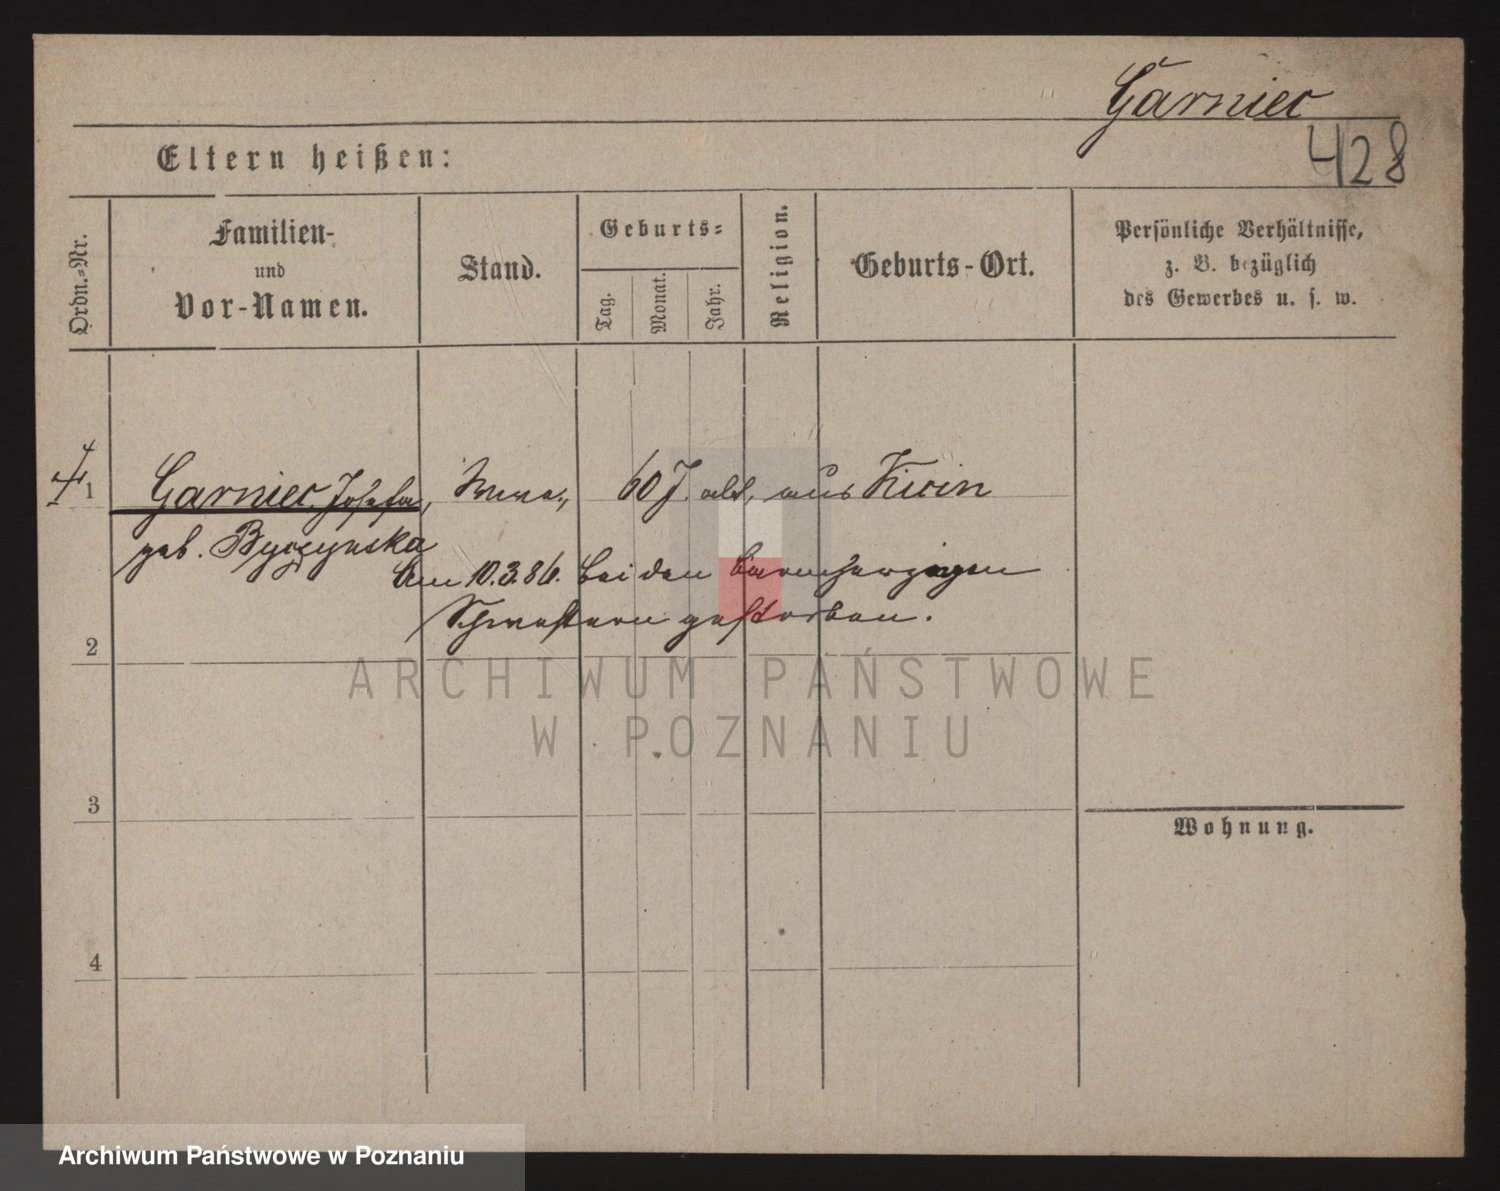 Garniec
428
Eltern heißen:
Ordn.=Nr.
Familien-
und
Vor-Namen.
Stand.
Geburts=
Tag.
Monat.
Jahr.
Religion.
Geburts-Ort.
Persönliche Verhältnisse,
z. B. bezüglich
des Gewerbes u. s. w.
1 Garniec Josefa, 60 J. alt, aus Kicin
geb. Byczynska
am 10.3.86. bei den barmherzigen
Schwestern gestorben.
2
ARCHIWUM PAŃSTWOWE
W POZNANIU
3
Wohnung.
4
Archiwum Państwowe w Poznaniu